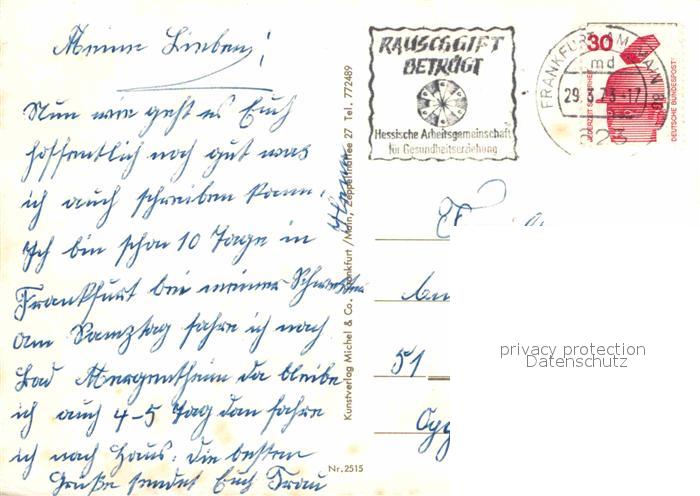 Meine Lieben!
Nun wie geht es Euch
hoffentlich noch gut was
ich auch schreiben kann.
Ich bin schon 10 Tage in
Frankfurt bei meiner Schwester
am Samztag fahre ich nach
Bad Mergentheim da bleibe
ich auch 4-5 Tag dan fahre
ich nach Haus. die besten
Grüße sendet Euch Frau
Kunstverlag Michel & Co., Frankfurt/Main, Zeppelinallee 27 Tel. 772489
Nr. 2515
RAUSCHGIFT
BETRÜGT
Hessische Arbeitsgemeinschaft
für Gesundheitserziehung
FRANKFURT AM MAIN
md
29.3.73-17
30
JEDERZEIT SICHERHEIT
DEUTSCHE BUNDESPOST
51
privacy protection
Datenschutz